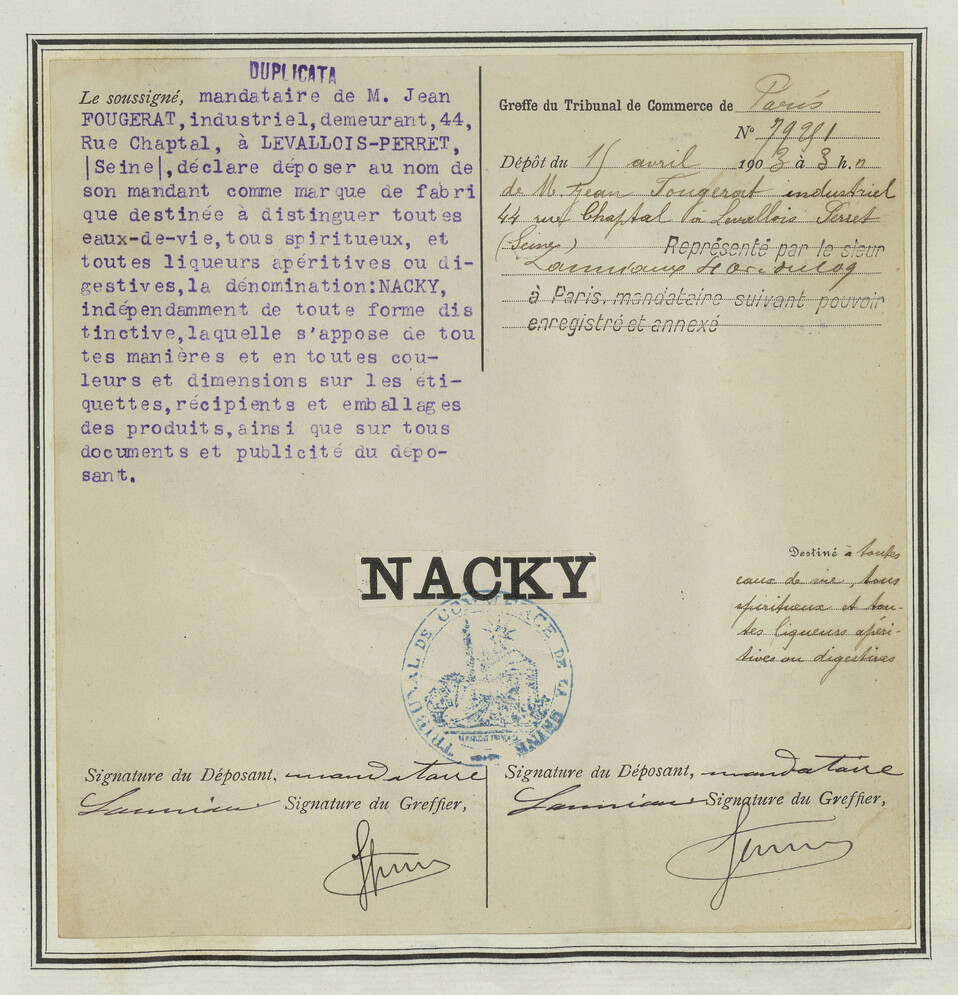 DUPLICATA
Le soussigné, mandataire de M. Jean
FOUGERAT, industriel, demeurant, 44,
Rue Chaptal, à LEVALLOIS-PERRET,
|Seine|, déclare déposer au nom de
son mandant comme marque de fabri
que destinée à distinguer toutes
eaux-de-vie, tous spiritueux, et
toutes liqueurs apéritives ou di-
gestives, la dénomination: NACKY,
indépendamment de toute forme dis
tinctive, laquelle s'appose de tou
tes manières et en toutes cou-
leurs et dimensions sur les éti-
quettes, récipients et emballages
des produits, ainsi que sur tous
documents et publicité du dépo-
sant.
Greffe du Tribunal de Commerce de Paris
N°
Dépôt du 15 avril 1903 à 3 h.
de M. Jean Fougerat industriel
44 rue Chaptal à Levallois Perret
(Seine) Représenté par le sieur
à Paris, mandataire suivant pouvoir
enregistré et annexé
NACKY
Destiné à toutes
eaux de vie, tous
spiritueux et tou-
tes liqueurs apéri-
tives ou digestives
TRIBUNAL DE COMMERCE DE LA SEINE
RÉPUBLIQUE FRANÇAISE
Signature du Déposant, mandataire
Signature du Greffier,
Signature du Déposant, mandataire
Signature du Greffier,